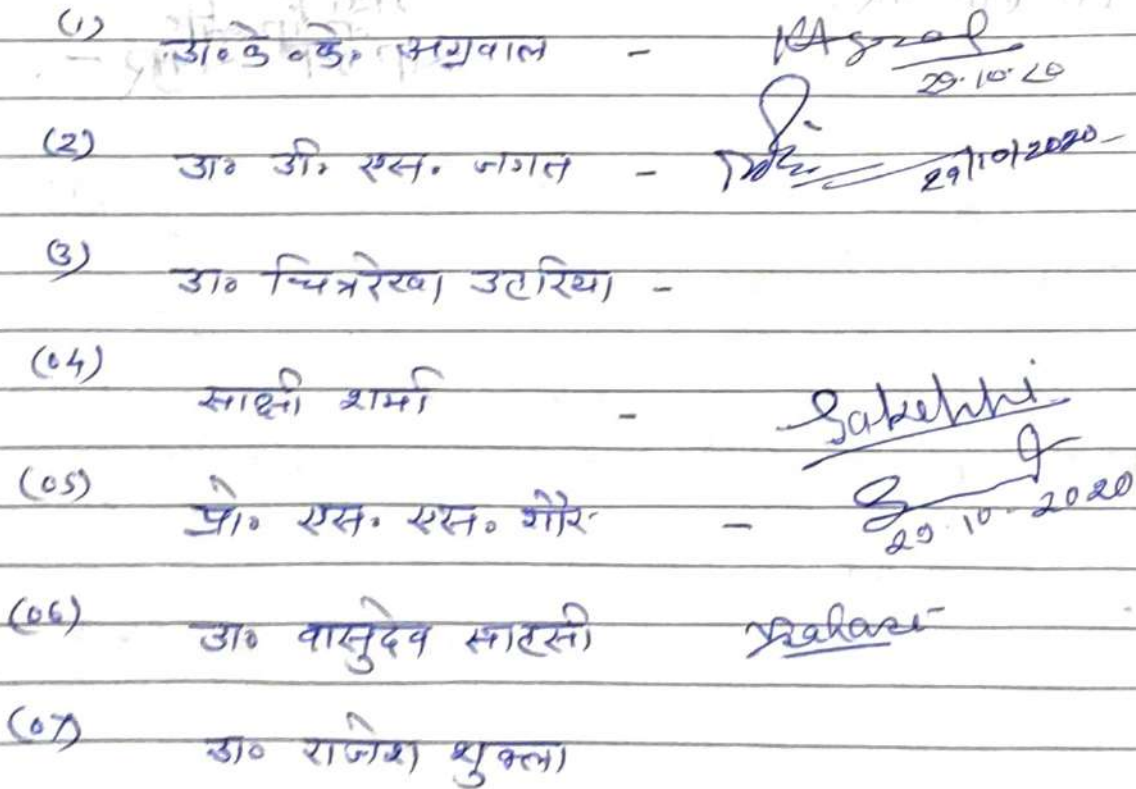 (1) डा० के० के० अग्रवाल - KAgrwal 29.10.20
(2) डा० डी० एस. जगत - 29/10/2020
(3) डा० चित्ररेखा उटरिया -
(04) साक्षी शर्मा - Sakshi
(05) प्रो० एस. एस. गौर - 29.10.2020
(06) डा० वासुदेव साहसी
(07) डा० राजेश शुक्ला